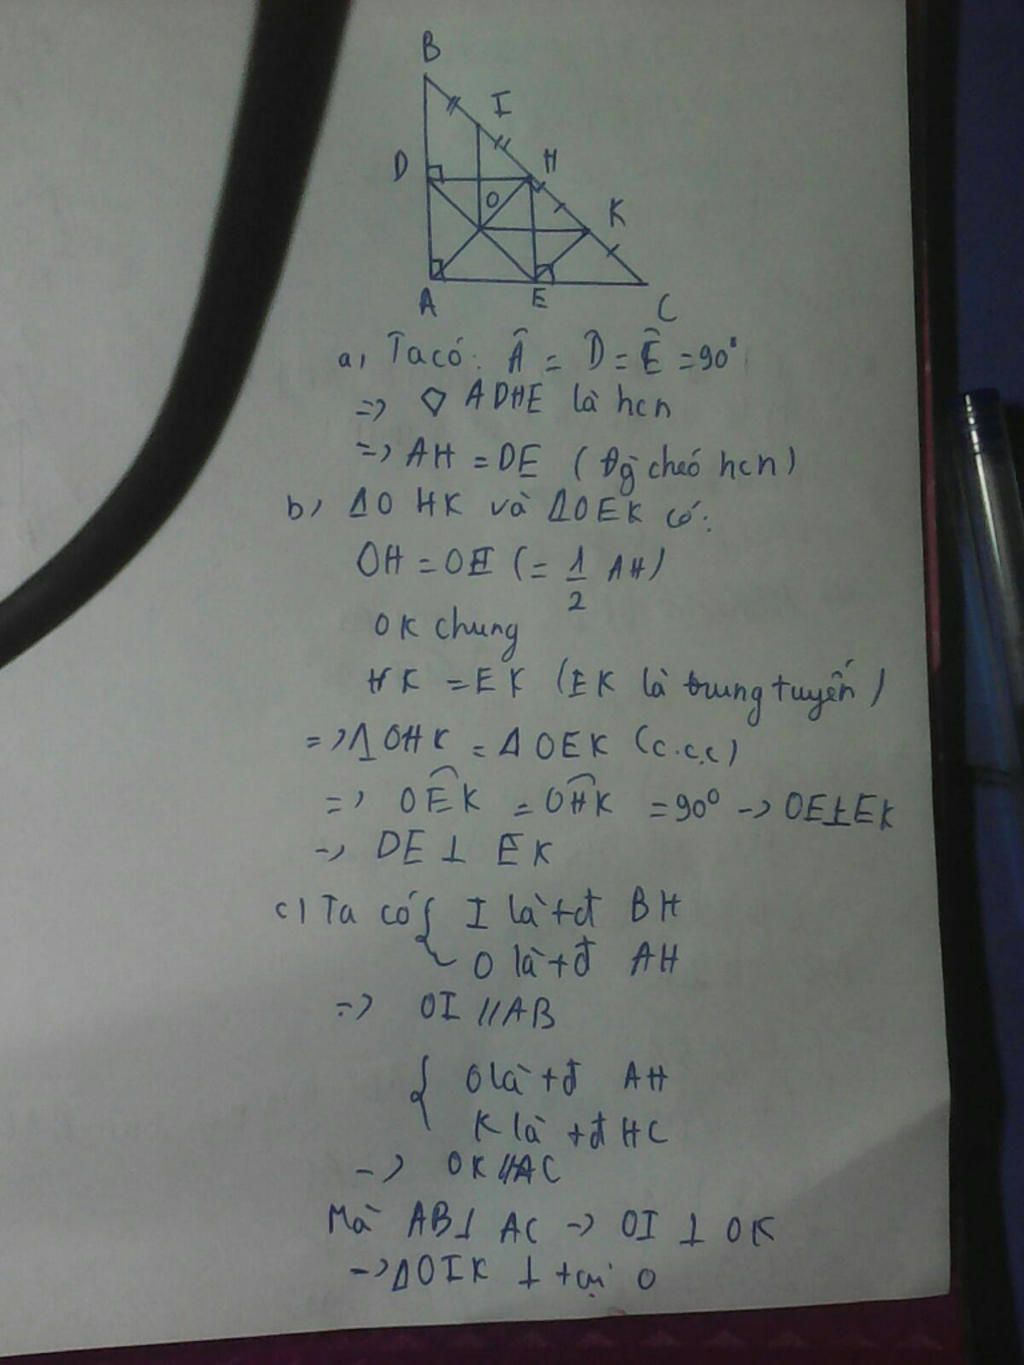 B
I
D
H
O
K
A
E
C
a, Ta có: Â = D = Ê = 90°
=> ADHE là hcn
=> AH = DE (Đg chéo hcn)
b, ΔOHK và ΔOEK có:
OH = OE (= 1/2 AH)
OK chung
HK = EK (EK là trung tuyến)
=> ΔOHK = ΔOEK (c.c.c)
=> OÊK = OĤK = 90° -> OE⊥EK
-> DE ⊥ EK
c) Ta có { I là tđ BH
O là tđ AH
=> OI // AB
{ O là tđ AH
K là tđ HC
-> OK // AC
Mà AB ⊥ AC -> OI ⊥ OK
-> ΔOIK ⊥ tại O